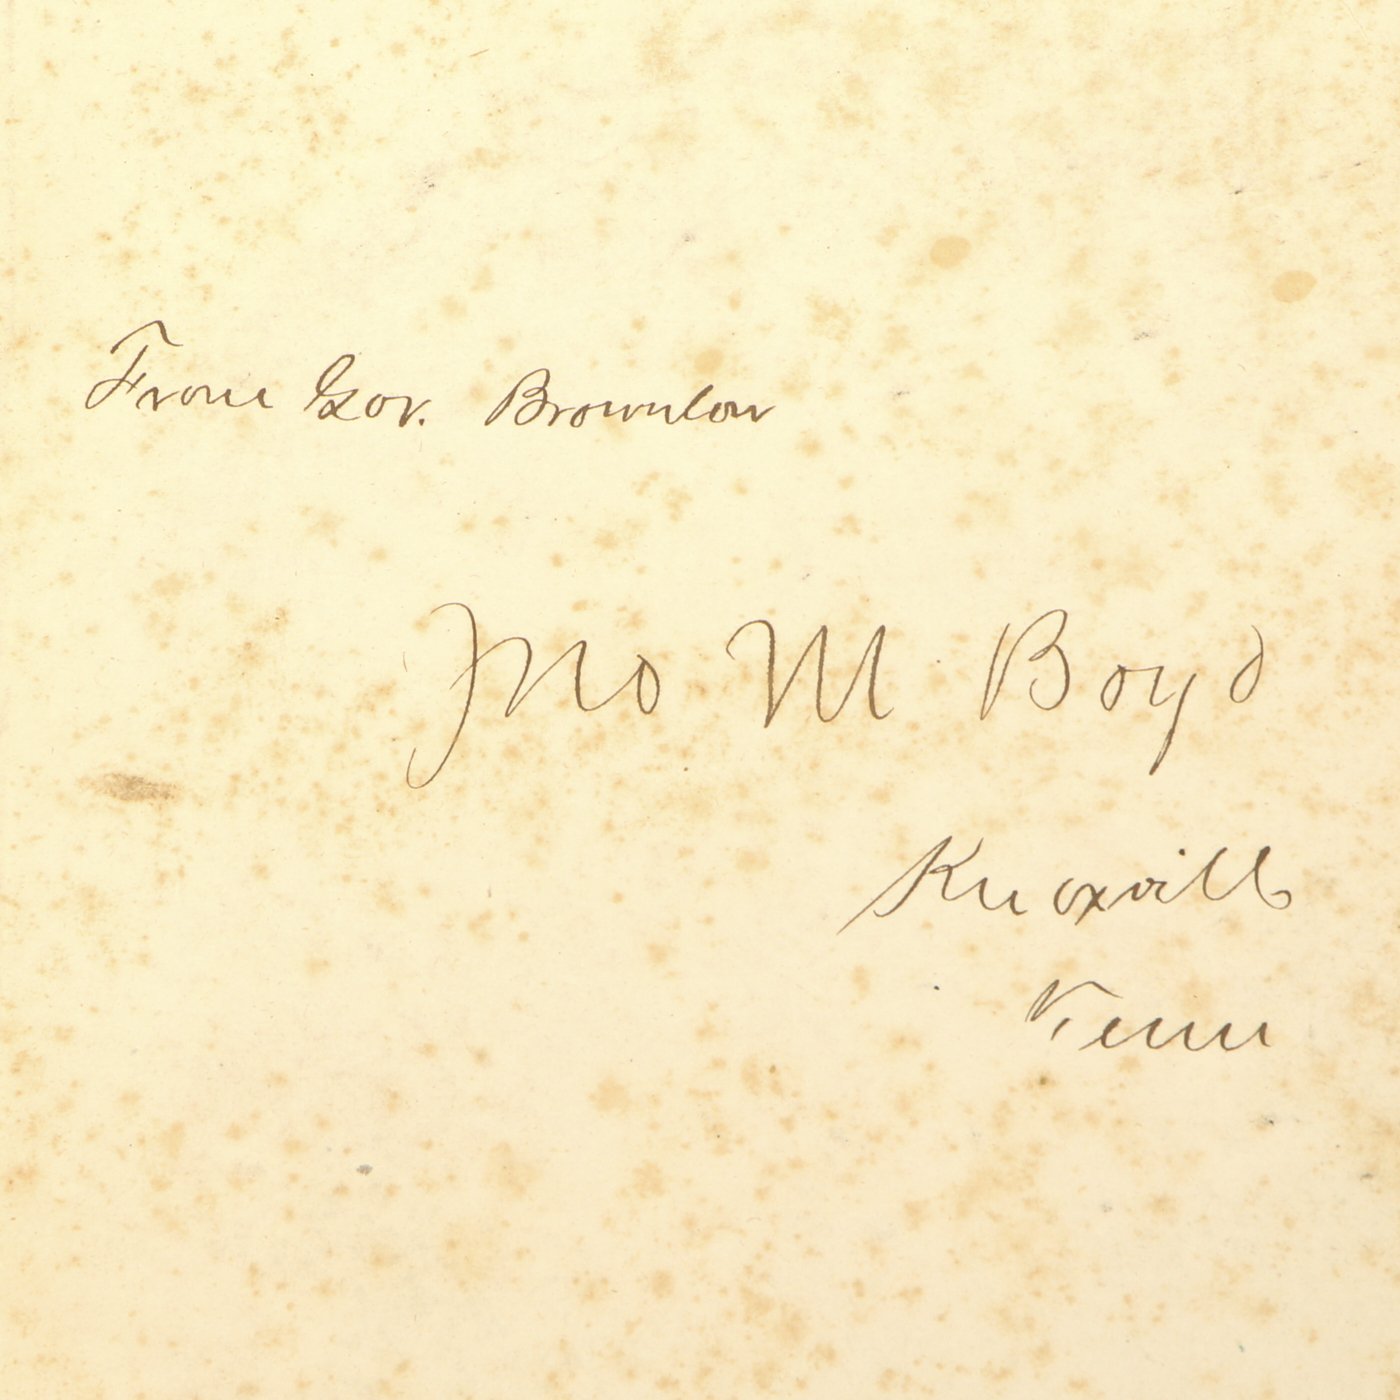 From Gov. Brownlow
Jno M Boyd
Knoxville
Tenn